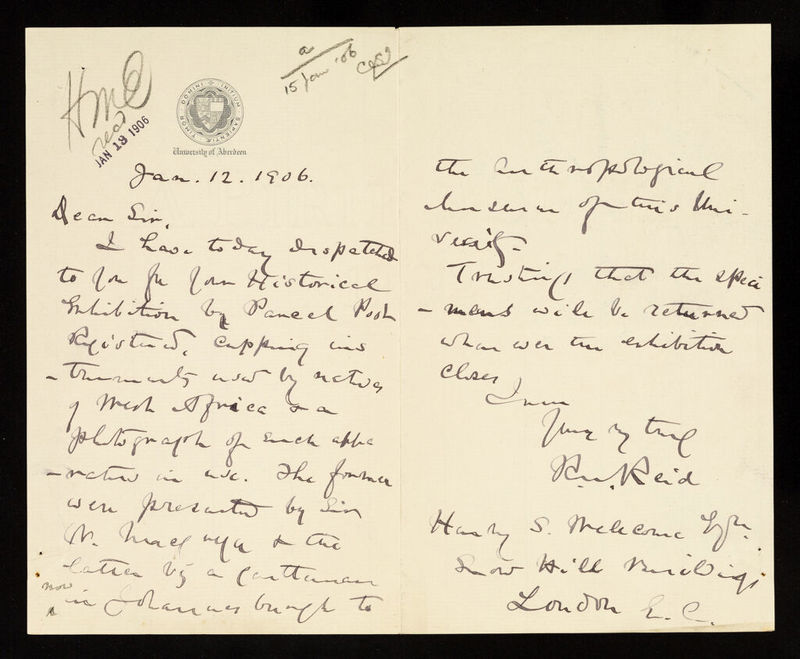 HMC
read
JAN 19 1906
a
15 Jan '06
INITIUM SAPIENTIÆ TIMOR DOMINI
University of Aberdeen
Jan. 12. 1906.
Dear Sir,
I have today dispatched
to you for your Historical
Exhibition by Parcel Post
Registered, cupping ins
-truments used by natives
of West Africa & a
photograph of such appa
-ratus in use. The former
were presented by Sir
W. MacGregor & the
latter by a gentleman
now
in Johannesburgh to
the Anthropological
Museum of this Uni-
versity.
Trusting that the speci
-mens will be returned
when ever the exhibition
closes
I am
Yours very truly
R.W. Reid
Henry S. Wellcome Esq.
Snow Hill Buildings
London E.C.